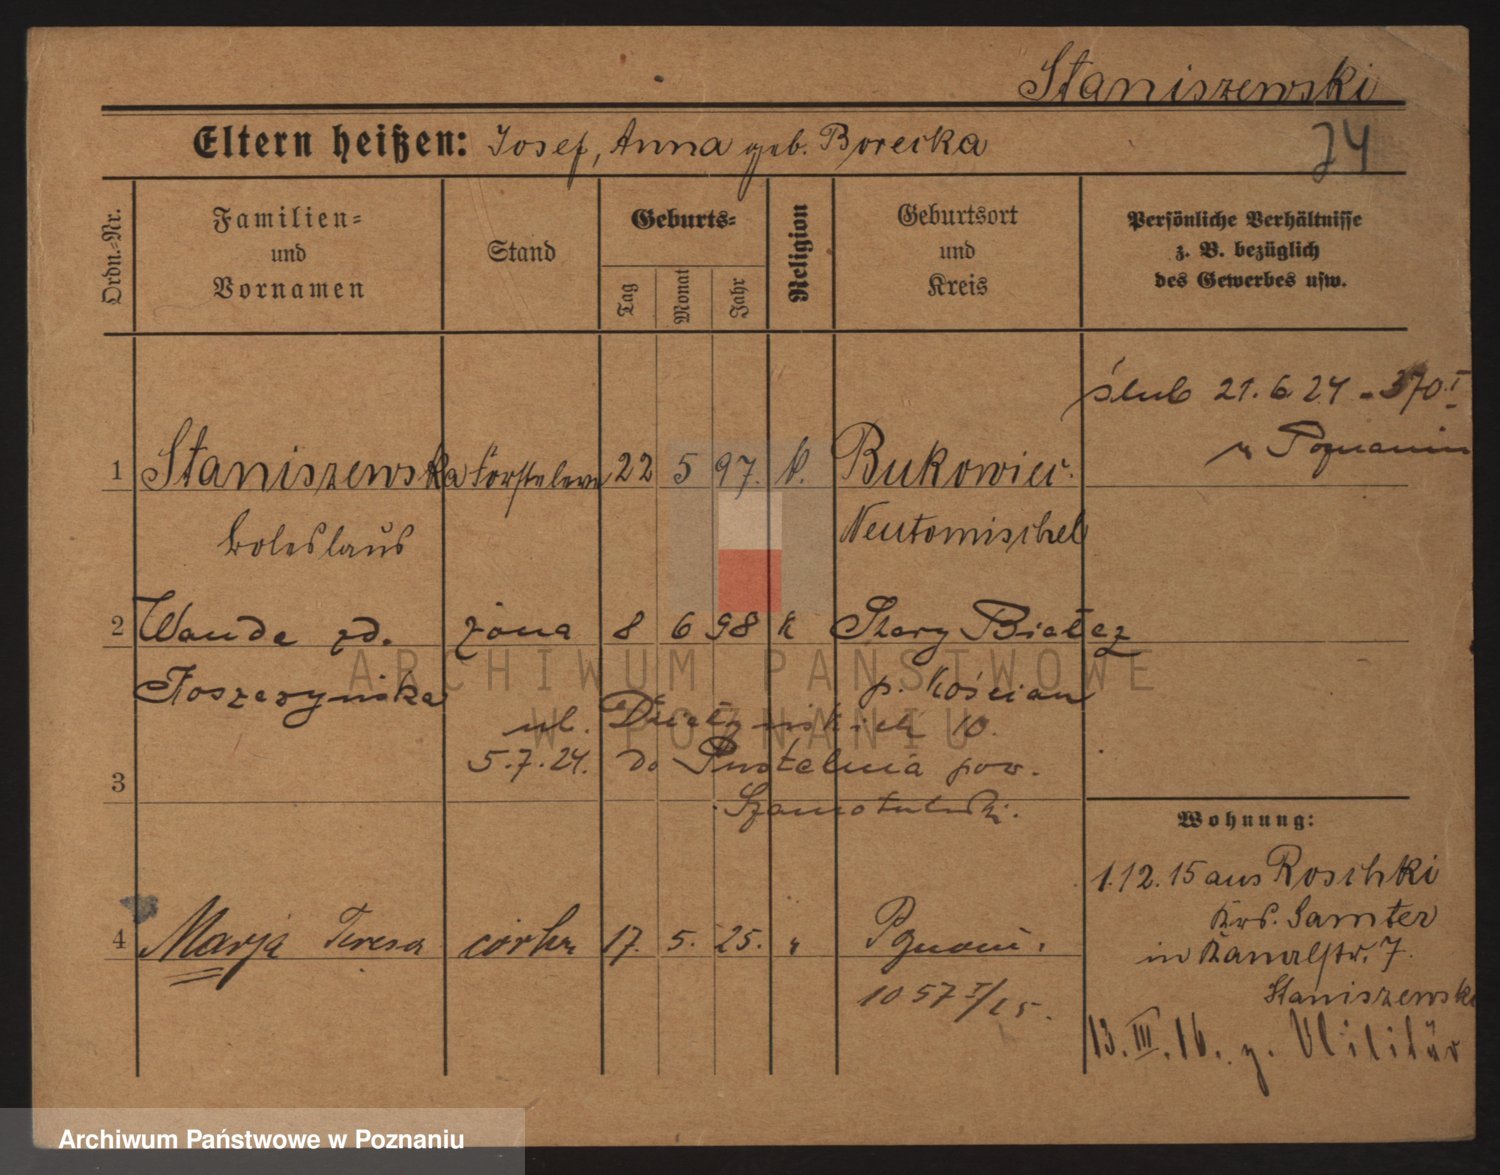 Staniszewski
Eltern heißen: Josef, Anna geb. Borecka
24
Ordn.=Nr.
Familien=
und
Vornamen
Stand
Geburts=
Tag
Monat
Jahr
Religion
Geburtsort
und
Kreis
Persönliche Verhältnisse
z. B. bezüglich
des Gewerbes usw.
ślub 21.6.24 - 370.I
w Poznaniu
1 Staniszewska 22 5 97. k. Bukowiec.
Boleslaus Neutomischel
2 Wanda zd. żona 8 6 98 k Stary Białcz
p. Kościan
ul. 10.
5.7.24. do Pustelnia pow.
3
Szamotulski.
4 Marja Teresa córka 17. 5. 25. " Poznań.
1057 I/25.
Wohnung:
1.12.15 aus Roschki
Krs. Samter
in Kanalstr. 7.
Staniszewski
13.III.16. z. Militär
ARCHIWUM PAŃSTWOWE
W POZNANIU
Archiwum Państwowe w Poznaniu